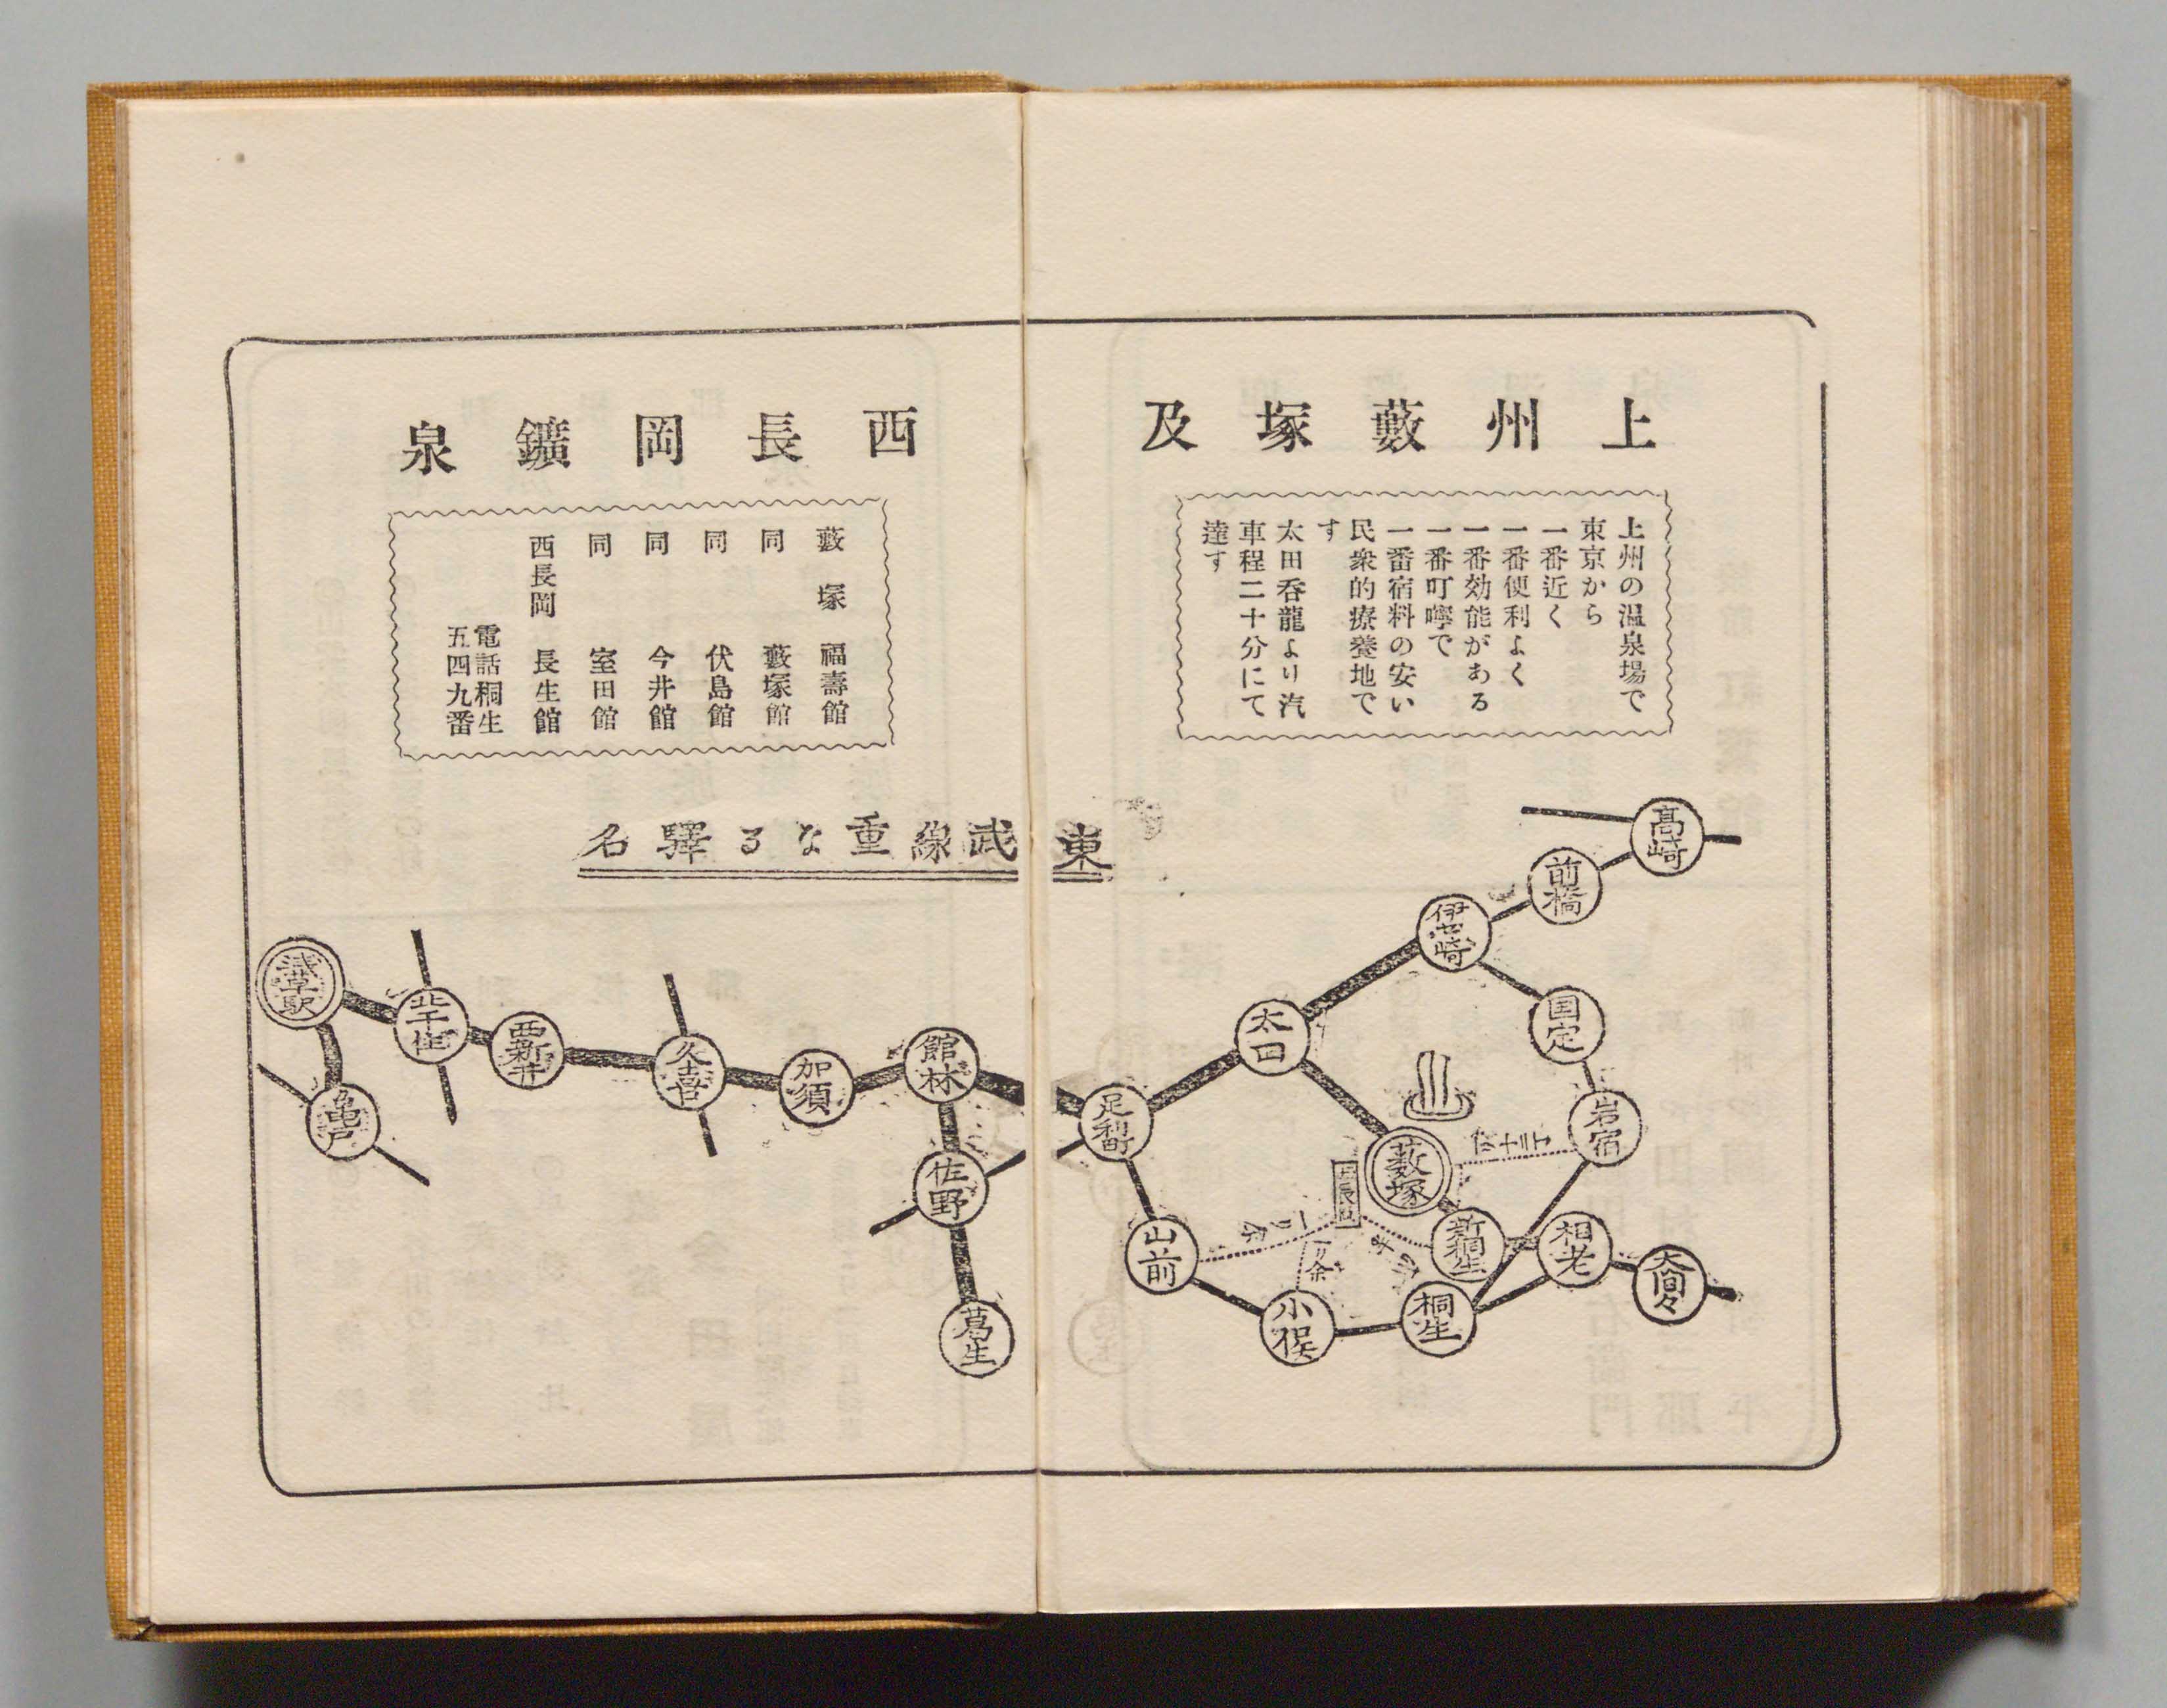 上州藪塚及
西長岡鑛泉
上州の温泉場で
東京から
一番近く
一番便利よく
一番効能がある
一番叮嚀で
一番宿料の安い
民衆的療養地で
す
太田呑龍より汽
車程二十分にて
達す
藪塚 福壽館
同 藪塚館
同 伏島館
同 今井館
同 室田館
西長岡 長生館
電話桐生
五四九番
東武線重なる驛名
高崎
前橋
伊世崎
国定
岩宿
太田
藪塚
新桐生
相老
大間々
桐生
小俣
山前
足利町
館林
佐野
葛生
加須
久喜
西新井
北千住
浅草駅
亀戸